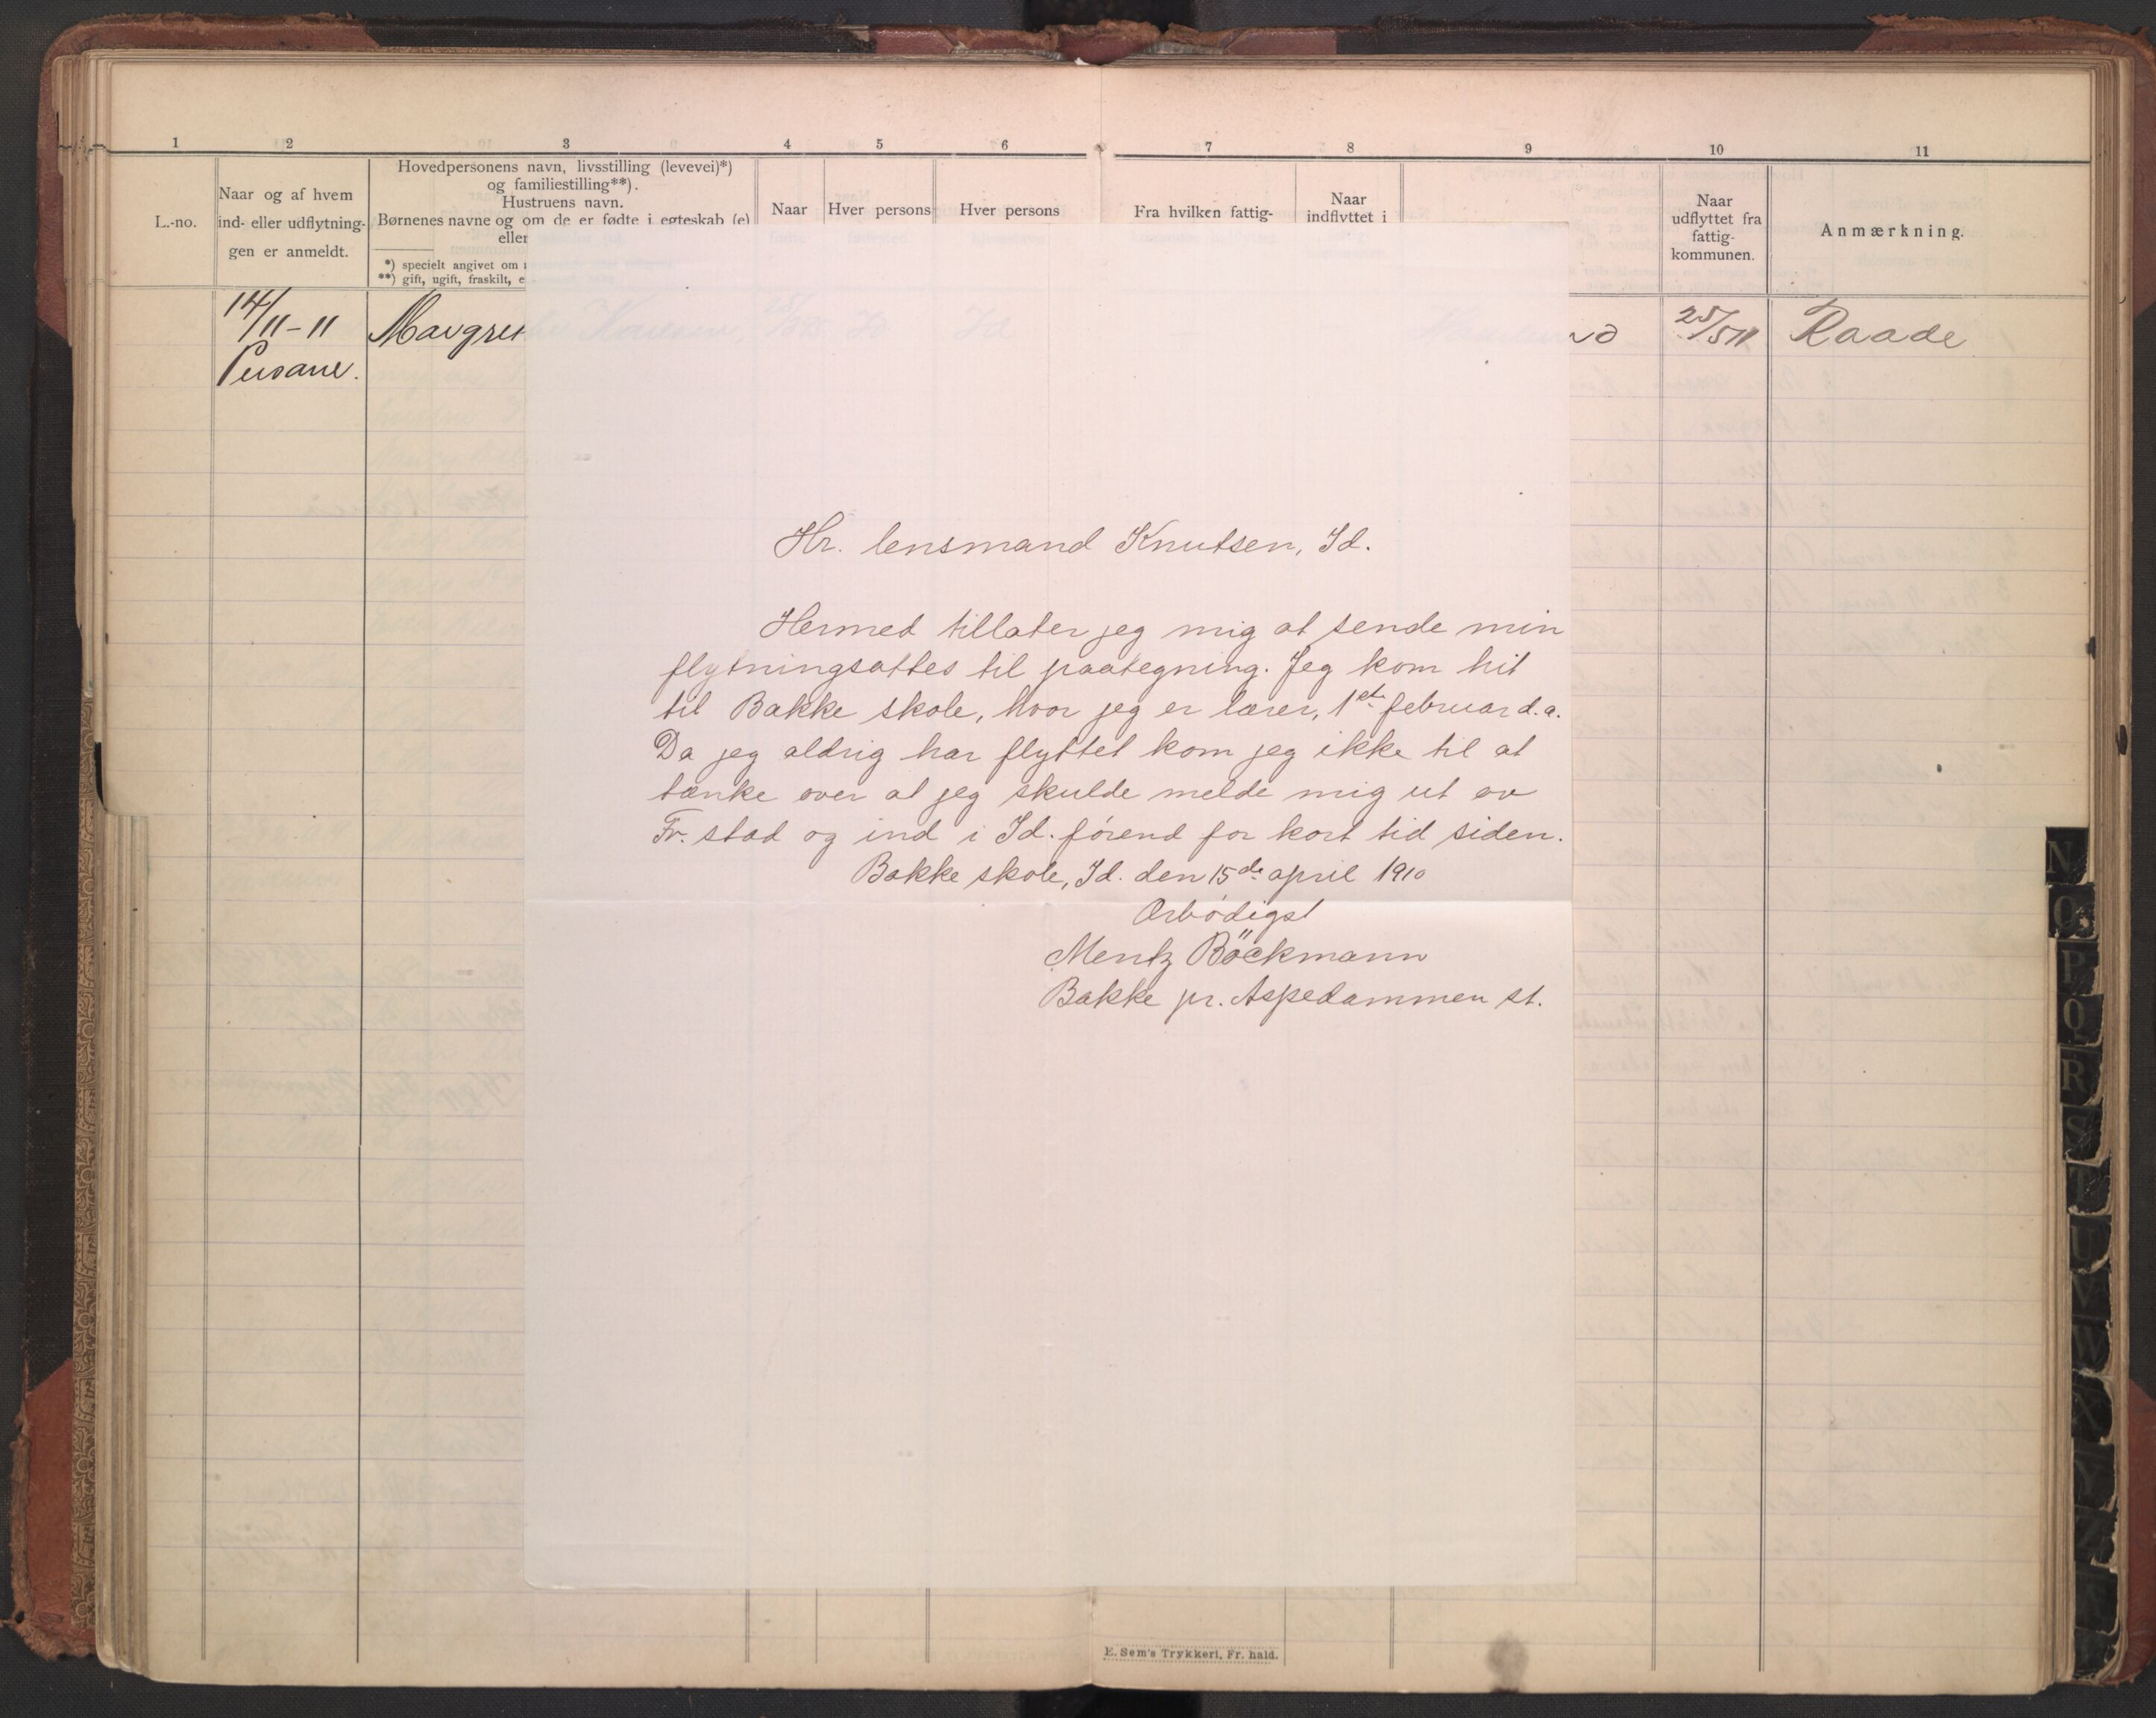 1 2 3 4 5 6 7 8 9 10 11
L.-no.
Naar og af hvem
ind- eller udflytnin-
gen er anmeldt.
Hovedpersonens navn, livsstilling (levevei)*)
og familiestilling**).
Hustruens navn.
Børnenes navne og om de er fødte i egteskab (e)
eller
*) specielt angivet om
**) gift, ugift, fraskilt, e
Naar
Hver persons
Hver persons
Fra hvilken fattig-
Naar
indflyttet i
Naar
udflyttet fra
fattig-
kommunen.
Anmærkning.
14/11-11
Margre
25/5 11
Raade
Hr. lensmand Knutsen, Id.
Hermed tillater jeg mig at sende min
flytningsattes til paategning. Jeg kom hit
til Bakke skole, hvor jeg er lærer, 1st februar d.a.
Da jeg aldrig har flyttet kom jeg ikke til at
tænke over at jeg skulde melde mig ut av
Fr.stad og ind i Id. førend for kort tid siden.
Bakke skole, Id. den 15de april 1910
Ærbødigst
Mentz Böckmann
Bakke pr. Aspedammen st.
E. Sem's Trykkeri, Fr. hald.
N
O
P
Q
R
S
T
U
V
W
X
Y
Z